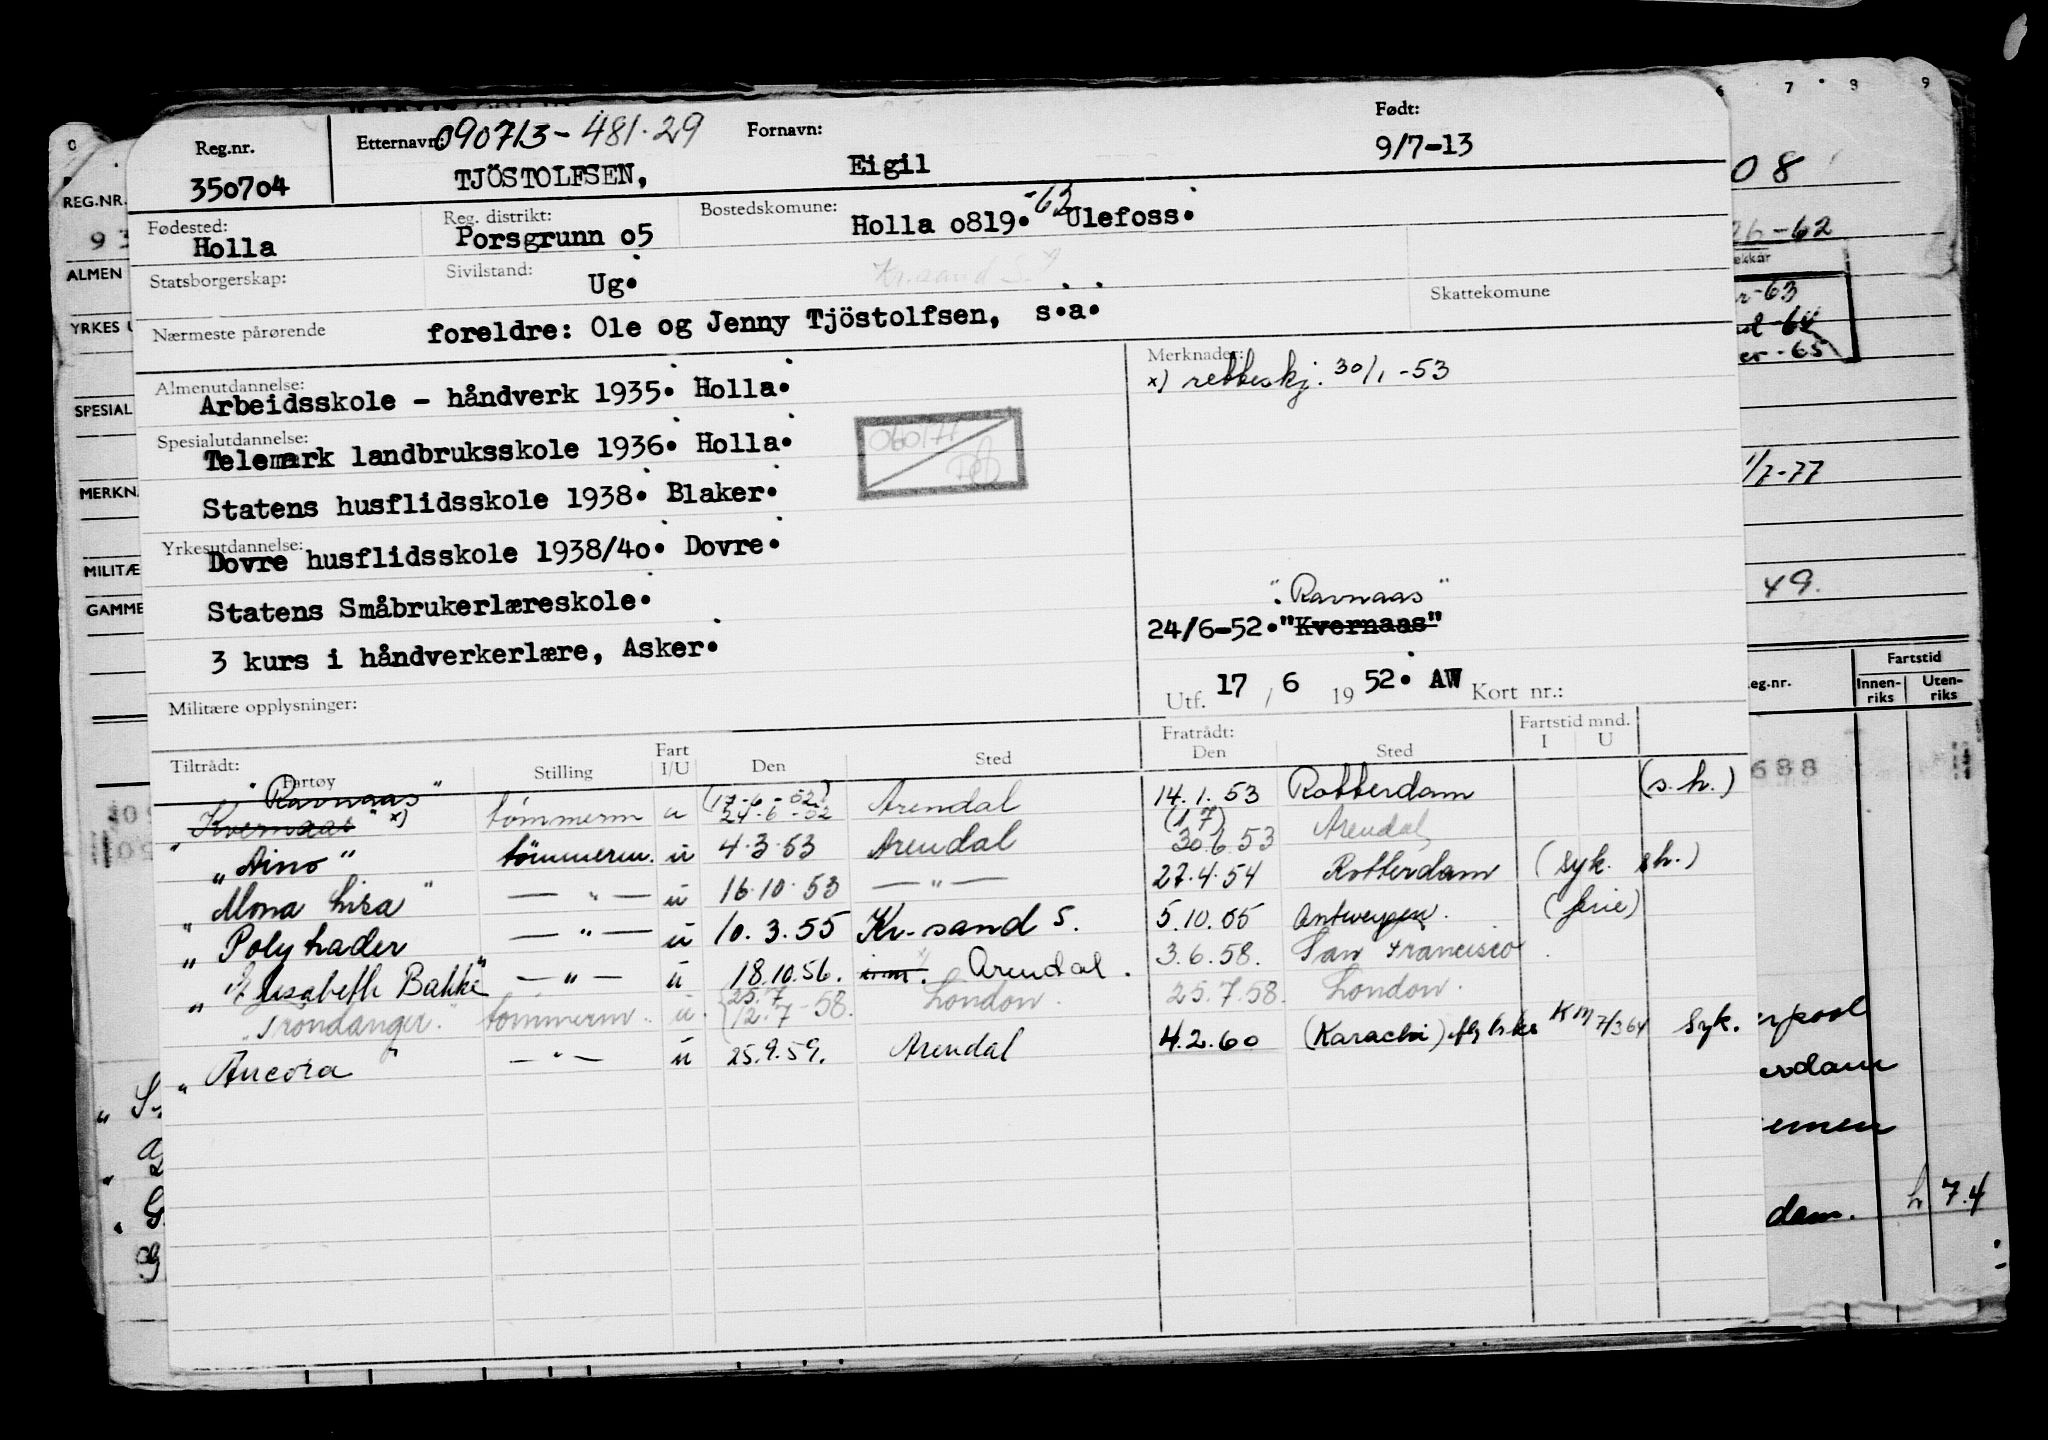 Reg.nr. Etternavn: 090713-481.29 Fornavn: Født:
350704 TJÖSTOLFSEN, Eigil 9/7-13
Fødested: Reg. distrikt: Bostedskomune: -62
Holla Porsgrunn o5 Holla o819. Ulefoss.
Statsborgerskap: Sivilstand: Ug. Kr.sand S.
Nærmeste pårørende foreldre: Ole og Jenny Tjöstolfsen, s.a. Skattekomune
Almenutdannelse: Merknader:
Arbeidsskole - håndverk 1935. Holla. x) rettes kj. 30/1-53
Spesialutdannelse:
Telemark landbruksskole 1936. Holla.
Statens husflidsskole 1938. Blaker.
Yrkesutdannelse:
Dovre husflidsskole 1938/4o. Dovre.
"Ravnaas"
Statens Småbrukerlæreskole. 24/6-52. "Kvernaas"
3 kurs i håndverkerlære, Asker.
Utf. 17 / 6 19 52. AW Kort nr.:
Militære opplysninger:
Tiltrådt: Fratrådt: Fartstid mnd.
Fartøy Stilling Fart I/U Den Sted Den Sted I U
"Ravnaas" (17-6-52)
"Kvernaas" x) tømmerm u 24-6-52 Arendal 14.1.53 Rotterdam (s.h.)
(1 7)
"Aino" tømmerm. u 4.3.53 Arendal 30.6.53 Arendal
"Mona Lisa" — " — u 16.10.53 — " — 27.4.54 Rotterdam (syk. sh.)
"Polytrader — " — u 10.3.55 Kr-sand S. 5.10.55 Antwerpen. (ferie)
"Elisabeth Bakke" — " — u 18.10.56. Arendal. 3.6.58. San Francisco
25.7
"Trondanger." tømmerm. u. 12.7-58. London. 25.7.58. London.
"Ancora" — " — u 25.9.59. Arendal 4.2.60 (Karachi) KM 7/3 64 Syk.
REG.NR.
ALMEN
SPESIAL
MILITÆ
GAMME
6 7 8 9
08
26-62
-63
-64
-65
1/7-77
49.
Fartstid
eg.nr. Innen-riks Uten-riks
688
dam.
7.4